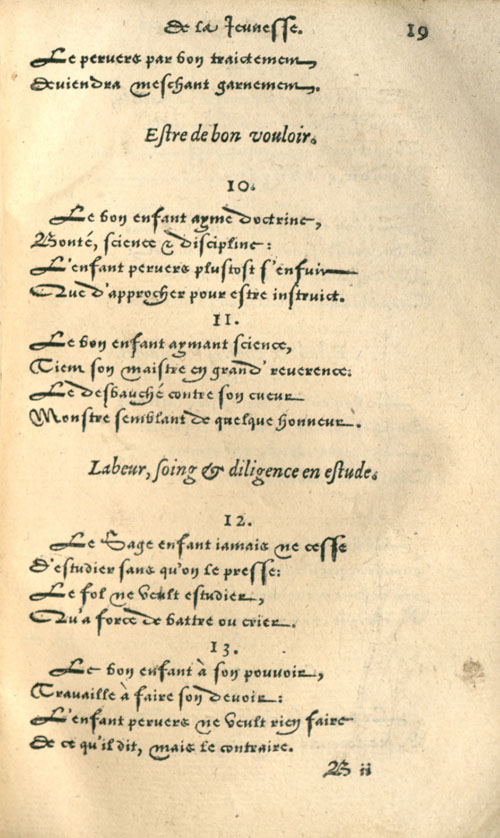 De la Jeunesse. 19
Le pervers par bon traictement,
Deviendra meschant garnement.
Estre de bon vouloir.
10.
Le bon enfant ayme doctrine,
Bonté, science & discipline:
L'enfant pervers plustost s'enfuir
Que d'approcher pour estre instruict.
11.
Le bon enfant aymant science,
Tient son maistre en grand' reverence:
Le desbauché contre son cueur
Monstre semblant de quelque honneur.
Labeur, soing & diligence en estude.
12.
Le Sage enfant iamais ne cesse
D'estudier sans qu'on le presse:
Le fol ne veult estudier,
Qu'a force de battre ou crier.
13.
Le bon enfant à son pouvoir,
Travaille à faire son devoir:
L'enfant pervers ne veult rien faire
De ce qu'il dit, mais le contraire.
B ii